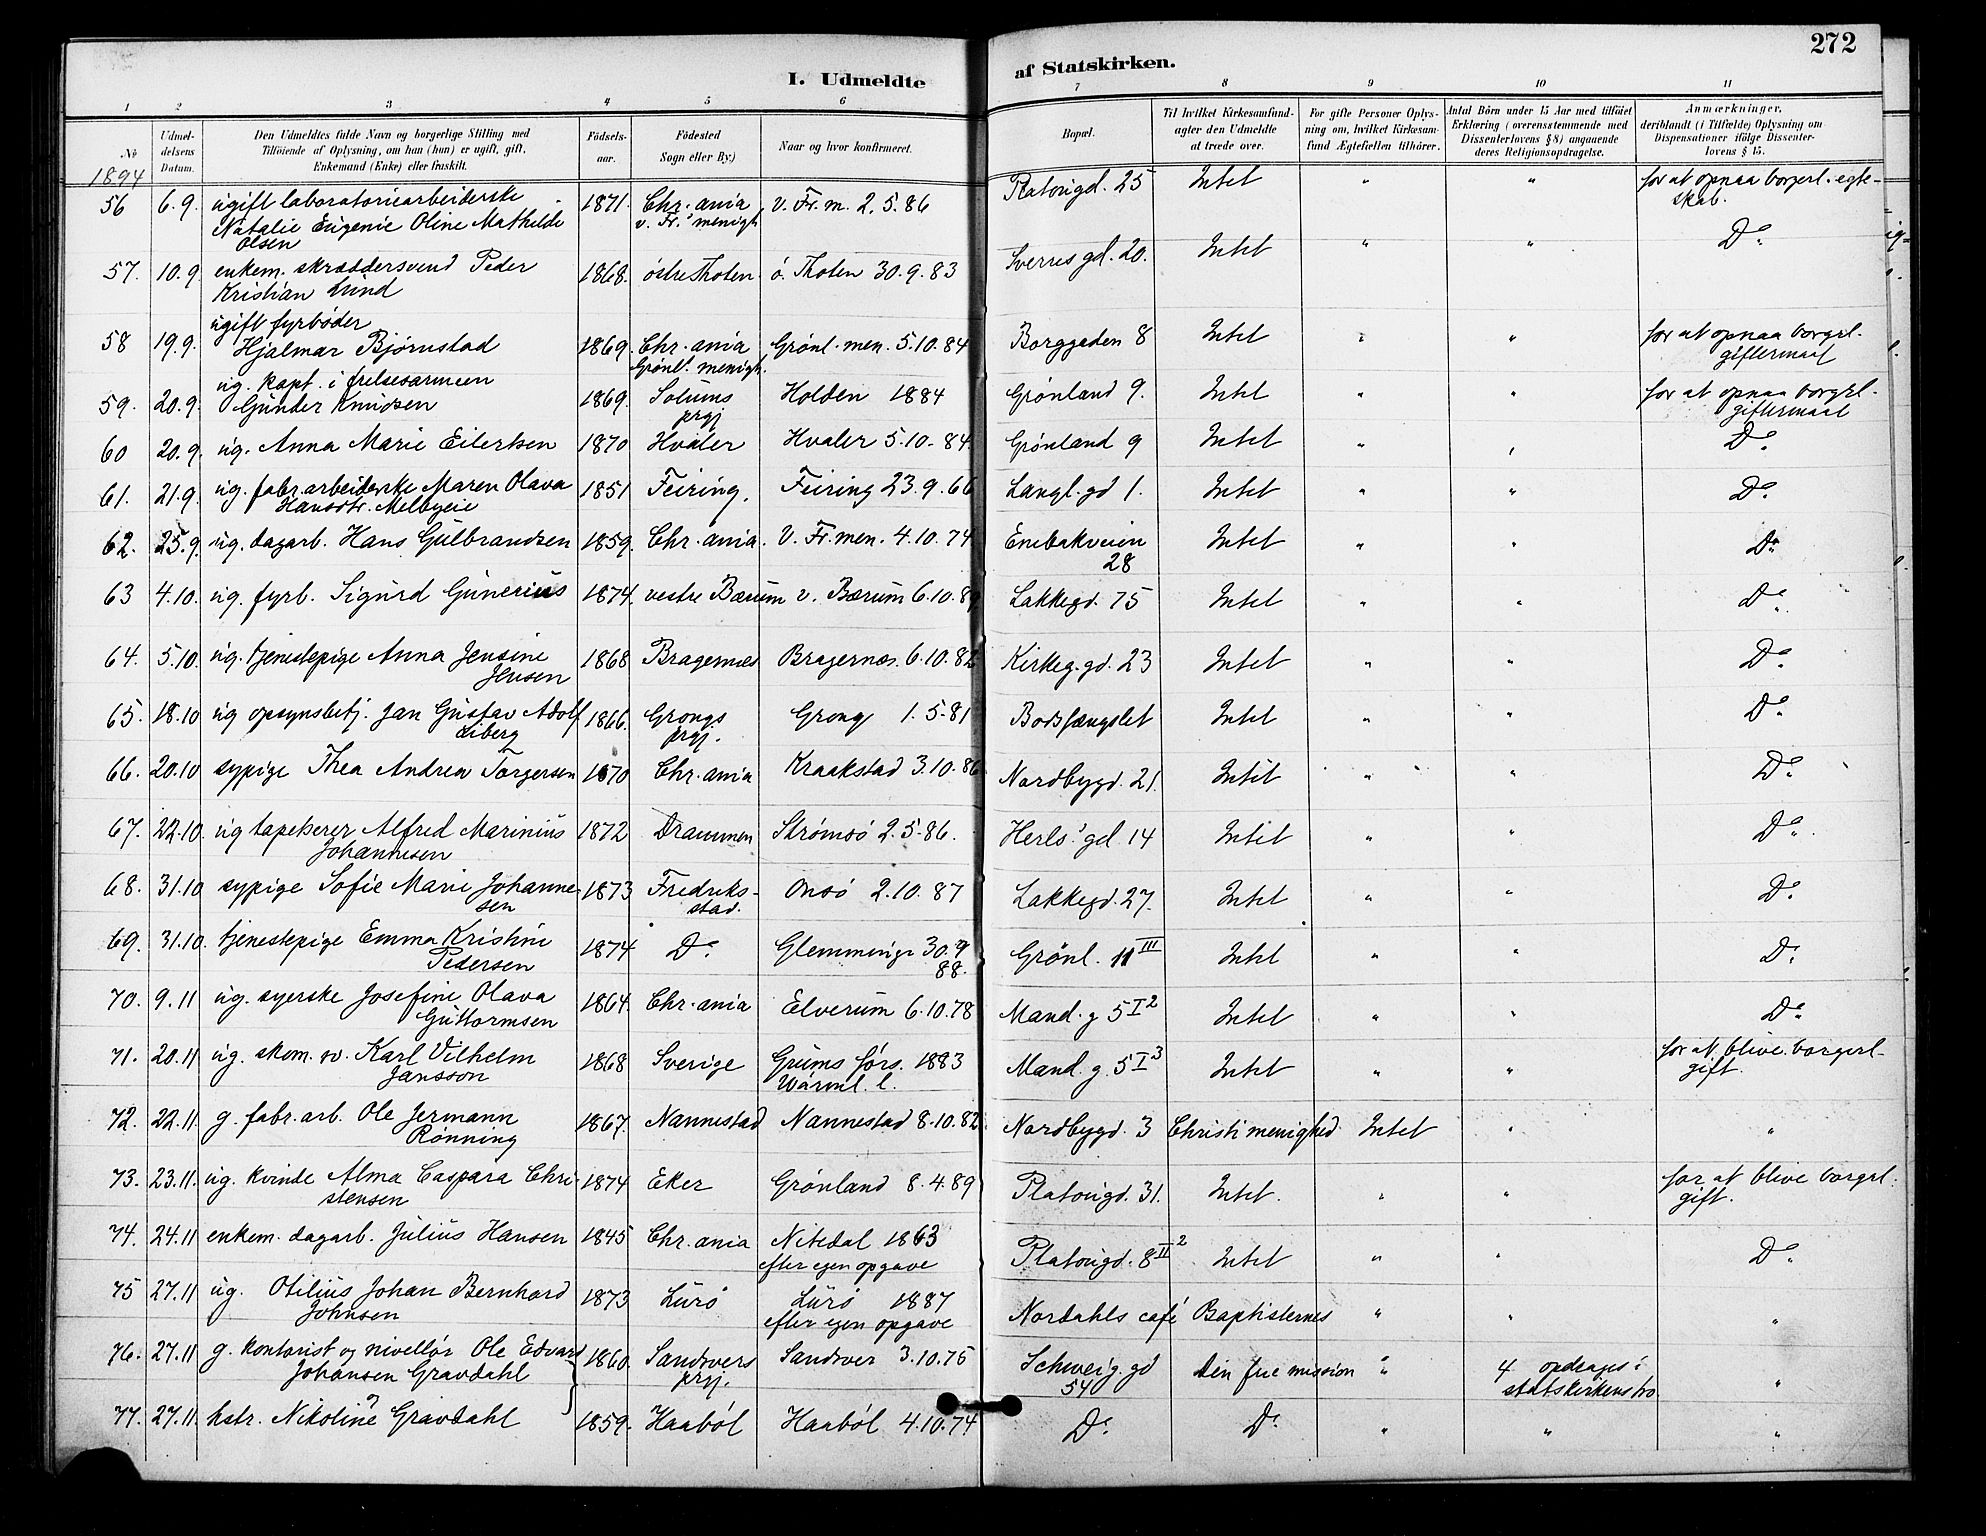 272
I. Udmeldte af Statskirken.
1 2 3 4 5 6 7 8 9 10 11
No
Udmeldelsens Datum.
Den Udmeldtes fulde Navn og borgerlige Stilling med
Tilföiende af Oplysning, om han (hun) er ugift, gift,
Enkemand (Enke) eller fraskilt.
Födselsaar.
Födested
Sogn eller By.)
Naar og hvor konfirmeret.
Bopæl.
Til hvilket Kirkesamfund-
agter den Udmeldte
at træde over.
For gifte Personer Oplys-
ning om, hvilket Kirkesam-
fund Ægtefællen tilhörer.
Antal Börn under 15 Aar med tilföiet
Erklæring (overensstemmende med
Dissenterlovens § 8) angaaende
deres Religionsopdragelse.
Anmærkninger,
deriblandt (i Tilfælde) Oplysning om
Dispensationer ifölge Dissenter-
lovens § 15.
1894
56 6.9. ugift laboratoriearbeiderske 1871. Chr.ania V. Fr. m. 2.5.86 Platousgd. 25 Intet " " for at opnaa borgerl. egte-
Natalie Eugenie Oline Mathilde v. Fr.' menigh. skab.
Olsen
57. 10.9. enkem. skræddersvend Peder 1868. østre Thoten ö. Thoten 30.9.83 Sverres gd. 20. Intet " " Do.
Kristian Lund
58 19.9. ugift fyrbøder
Hjalmar Bjørnstad 1869. Chr.ania Grönl. men. 5.10.84 Borggaden 8 Intet " " for at opnaa borgrl.
Grönl. menigh. giftermaal
59. 20.9. ug. kapt. i frelsesarmeen
Gunder Knudsen 1869. Solums Holden 1884 Grønland 9. Intet " " for at opnaa borgrl.
prgj giftermaal
60 20.9. ug. Anna Marie Eilertsen 1870 Hvaler Hvaler 5.10.84. Grønland 9 Intet " " Do.
61. 21.9. ug. fabr.arbeiderske Maren Olava 1851 Feiring. Feiring 23.9.66 Langl. gd 1. Intet " " Do.
Hansdtr. Melbyeie
62. 25.9. ug. dagarb. Hans Gulbrandsen 1859. Chr.ania. V. Fr. men. 4.10.74 Enebakveien Intet " " Do.
28
63 4.10. ug. fyrb. Sigurd Gunerius 1874. vestre Bærum v. Bærum 6.10.89 Lakkegd. 75 Intet " " Do.
64. 5.10. ug. tjenestepige Anna Jensine 1868 Bragernes Bragernes. 6.10.82 Kirkeg.gd. 23 Intet " " Do.
Jensen
65. 18.10 ug opsynsbetj. Jan Gustav Adolf 1866. Grongs Grong 1.5.81 Bodsfængslet Intet " " Do.
Liberg prgj.
66. 20.10 sypige Thea Andrea Torgersen 1870 Chr.ania Kraakstad 3.10.86 Nordbygd. 21. Intet " " Do.
67. 22.10. ug tapetserer Alfred Marinius 1872 Drammen Strømsö 2.5.86. Herls.' gd. 14 Intet " " Do.
Johannesen
68. 31.10 sypige Sofie Marie Johanne- 1873 Fredriks- Onsö 2.10.87 Lakkegd. 27. Intet " " Do.
sen stad.
69. 31.10. tjenestepige Emma Kristine 1874 Do. Glemminge 30.9 Grönl. 11 III Intet " " Do.
Pedersen 88.
70. 9.11 ug. syerske Josefine Olava 1864. Chr.ania Elverum 6.10.78 Mand. g 5 I 2 Intet " " Do.
Guttormsen
71. 20.11 ug. skom. sv. Karl Vilhelm 1868 Sverige Grums förs. 1883 Mand. g. 5 I 3 Intet " " for at blive borgerl.
Jansson Wärml. l. gift.
72. 22.11. g. fabr.arb. Ole Jermann 1867. Nannestad Nannestad 8.10.82 Nordbygd. 3 Christi menighed Intet " "
Rønning
73. 23.11. ug. kvinde Alma Caspara Chri- 1874 Eker Grønland 8.4.89 Platousgd. 31. Intet. " " for at blive borgrl.
stensen gift.
74. 24.11 enkem. dagarb. Julius Hansen 1845 Chr.ania Nitedal 1863 Platousgd. 8 II 2 Intet " " Do.
efter egen opgave
75 27.11 ug. Otilius Johan Bernhard 1873 Lurö Lurö 1887 Nordahls café Baptisternes " " "
Johnsen efter egen opgave
76. 27.11 g. kontorist og nivellør Ole Edvard 1860. Sandsvers Sandsver 3.10.75 Schweig. gd Den frie mission " 4 opdrages i "
Johansen Gravdahl prgj. 54 statskirkens tro
77. 27.11. hstr. Nikoline Gravdahl 1859. Haabøl Haabøl 4.10.74 Do. Do. " " "